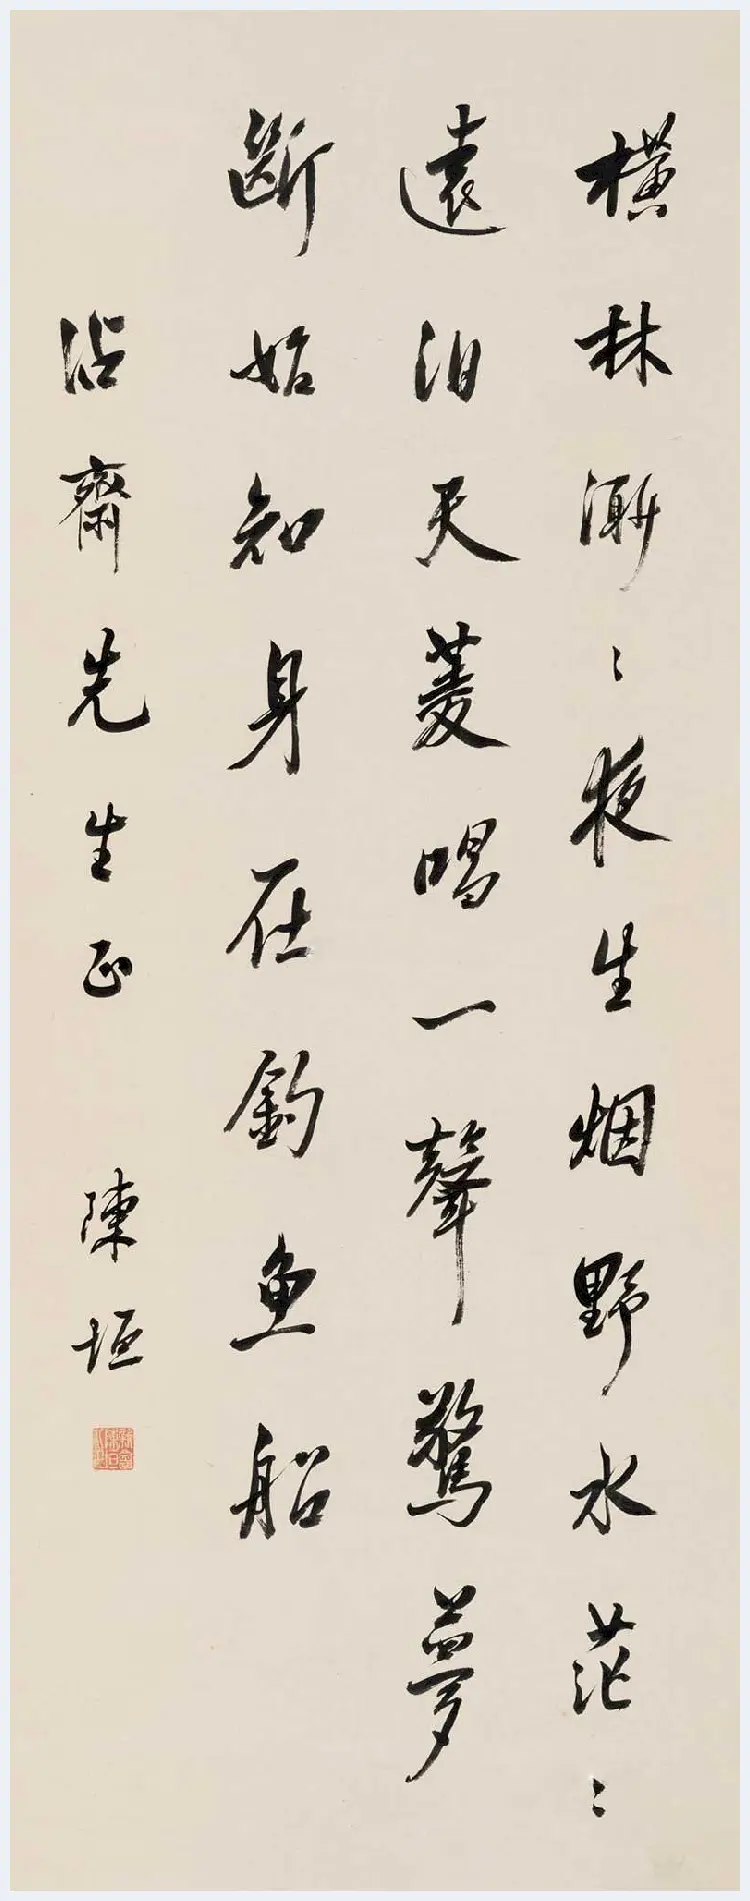 橫林漸〻夜生烟野水茫〻
遠泊天菱唱一聲驚夢
斷始知身在釣魚船
沾齋先生正 陳垣